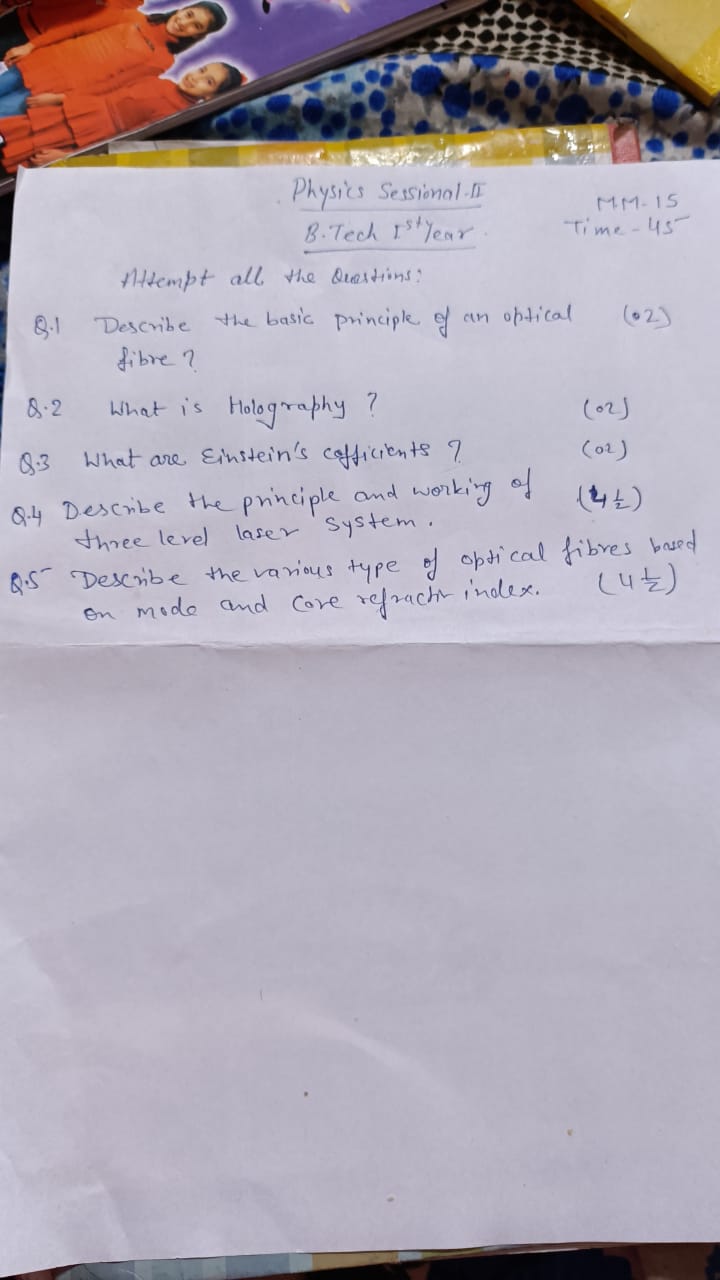 Physics Sessional-II
MM-15
B.Tech Ist Year.
Time-45
Attempt all the Questions:
Q.1 Describe the basic principle of an optical (02)
fibre ?
Q.2 What is Holography ? (02)
Q.3 What are Einstein's cofficients ? (02)
Q.4 Describe the principle and working of (4½)
three level laser system.
Q.5 Describe the various type of optical fibres based
on mode and core refractiv index. (4½)